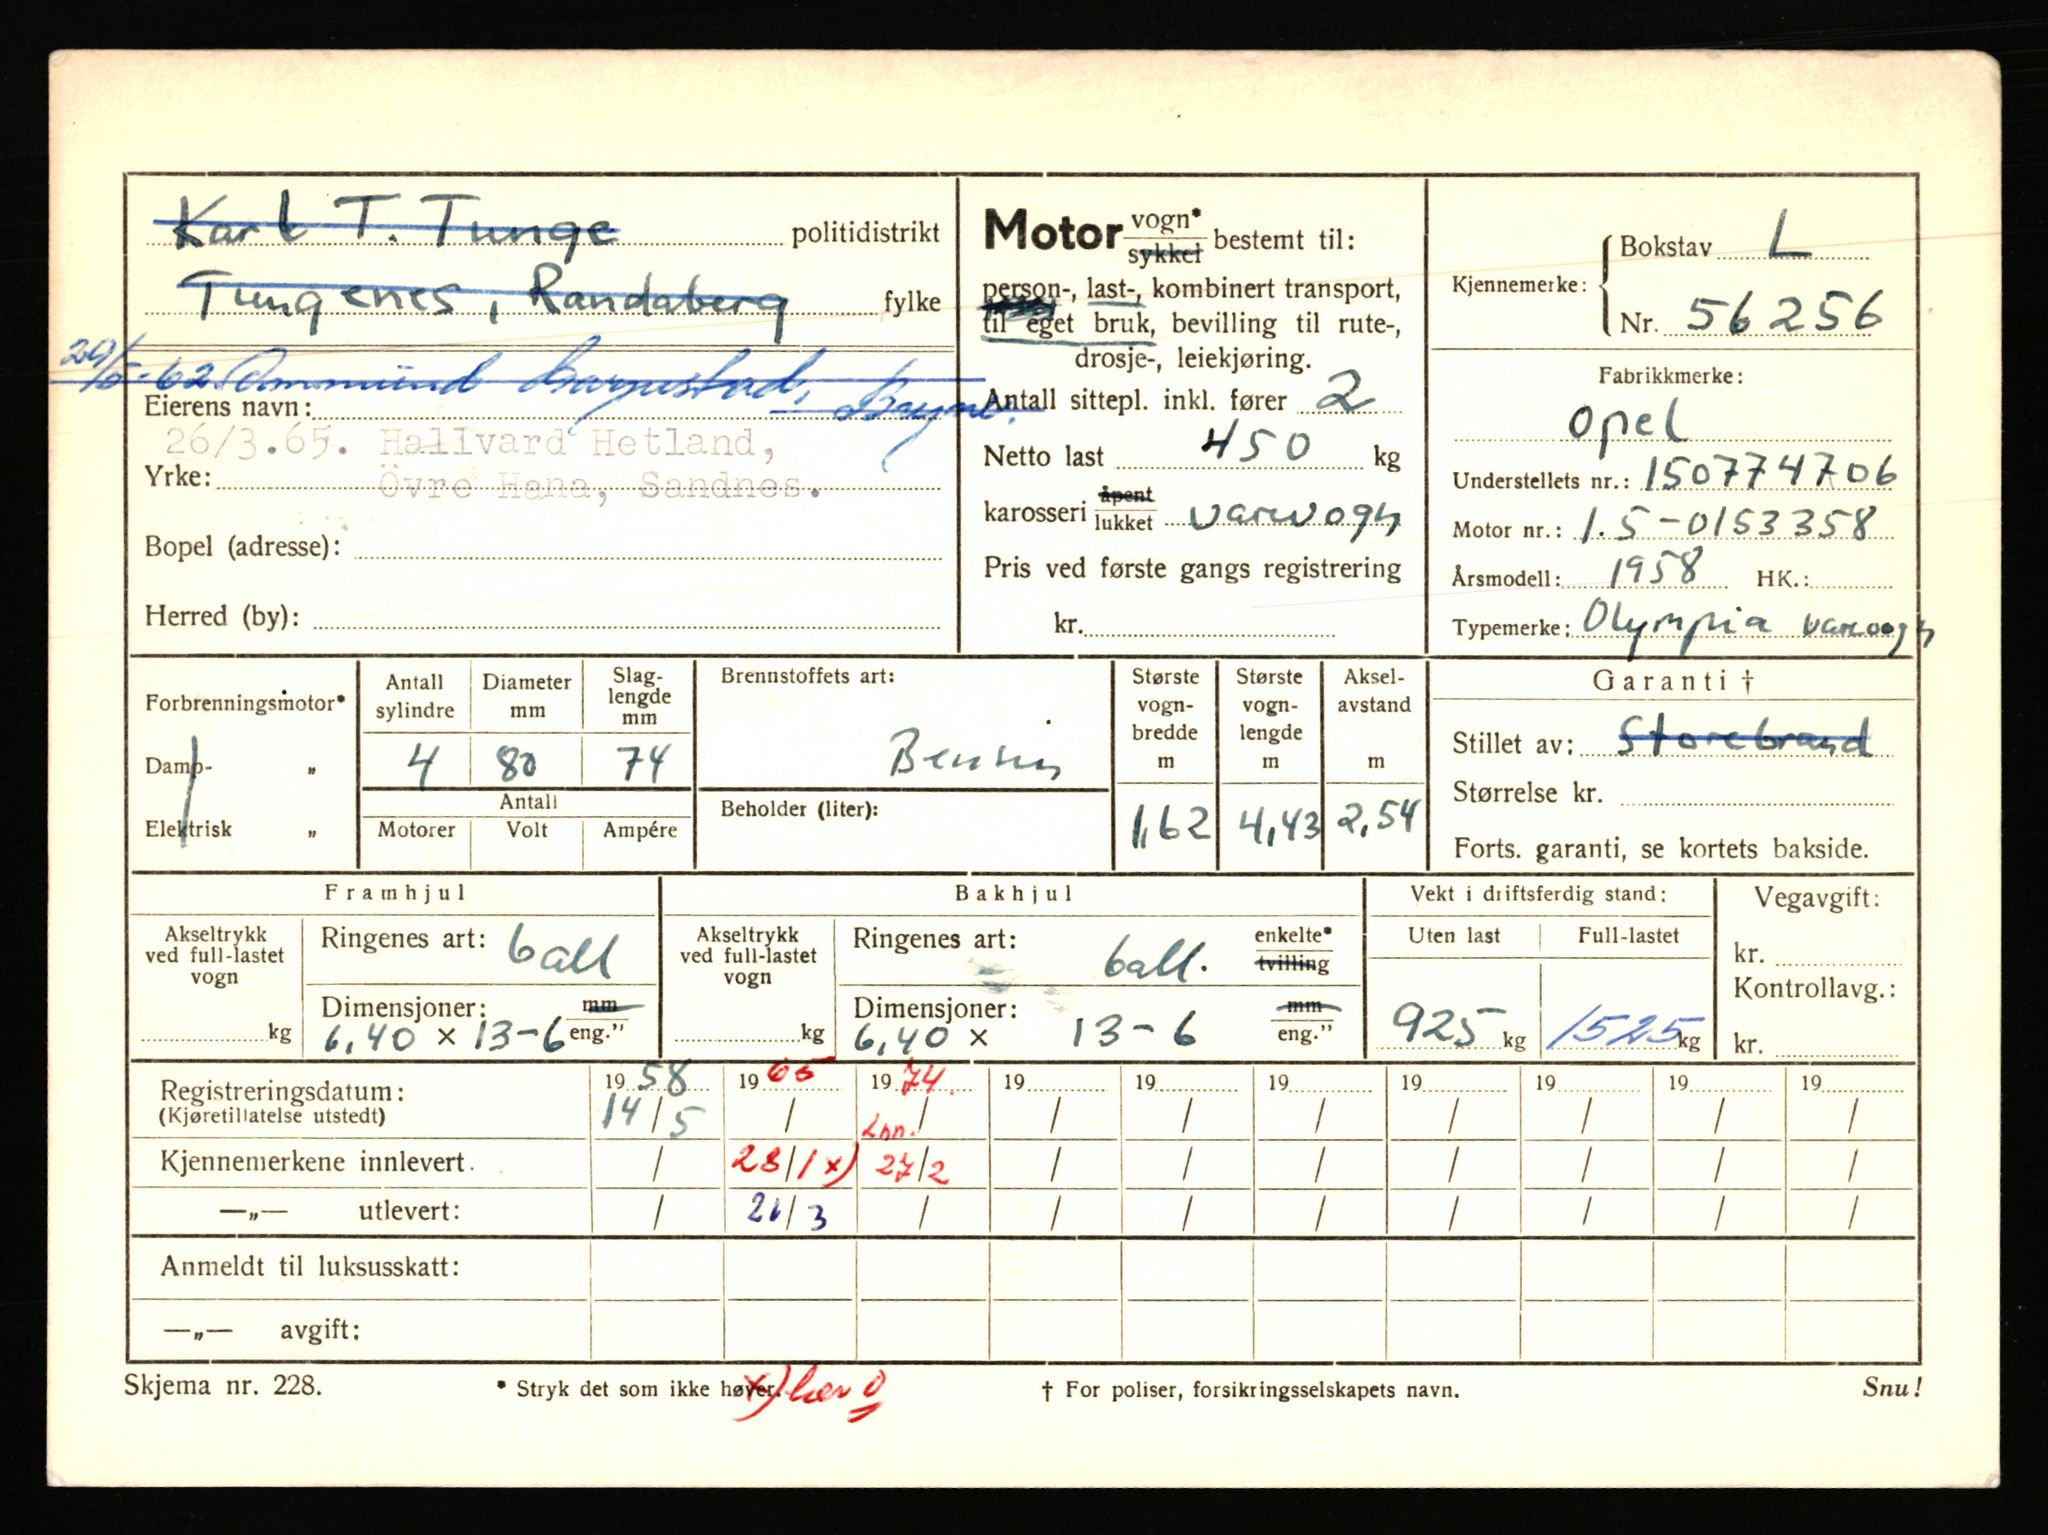 Karl T. Tunge politidistrikt
Tungenes, Randaberg fylke
29/5-62
Eierens navn:
26/3.65. Hallvard Hetland,
Yrke: Övre Hana, Sandnes.
Bopel (adresse):
Herred (by):
Motor vogn* sykkel bestemt til:
person-, last-, kombinert transport,
til eget bruk, bevilling til rute-,
drosje-, leiekjøring.
Antall sittepl. inkl. fører 2
Netto last 450 kg
karosseri åpent lukket varevogn
Pris ved første gangs registrering
kr.
Kjennemerke: Bokstav L
Nr. 56256
Fabrikkmerke:
Opel
Understellets nr.: 150774706
Motor nr.: 1.5-0153358
Årsmodell: 1958 HK.:
Typemerke: Olympia varevogn
Forbrenningsmotor*
Damp- „
Elektrisk „
Antall sylindre 4
Diameter mm 80
Slaglengde mm 74
Antall
Motorer Volt Ampére
Brennstoffets art:
Bensin
Beholder (liter):
Største vognbredde m 1,62
Største vognlengde m 4,43
Akselavstand m 2,54
Garanti †
Stillet av: Storebrand
Størrelse kr.
Forts. garanti, se kortets bakside.
Framhjul
Akseltrykk ved full-lastet vogn kg
Ringenes art: ball
Dimensjoner: mm
6,40 x 13-6 eng."
Bakhjul
Akseltrykk ved full-lastet vogn kg
Ringenes art: ball. enkelte* tvilling
Dimensjoner: mm
6,40 x 13-6 eng."
Vekt i driftsferdig stand:
Uten last Full-lastet
925 kg 1525 kg
Vegavgift:
kr.
Kontrollavg.:
kr.
Registreringsdatum: 19 58 19 65 19 74. 19 19 19 19 19 19 19
(Kjøretillatelse utstedt) 14/5 / / / / / / / / /
Inn.
Kjennemerkene innlevert. / 28/1 x) 27/2 / / / / / / /
—„— utlevert: / 26/3 / / / / / / / /
Anmeldt til luksusskatt:
—„— avgift:
Skjema nr. 228. * Stryk det som ikke høver. † For poliser, forsikringsselskapets navn. Snu!